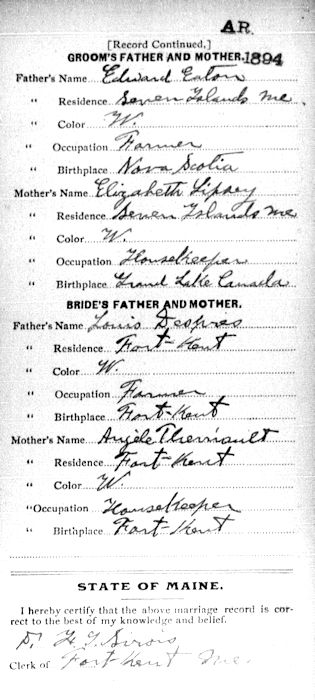 AR.
[Record Continued.]
GROOM'S FATHER AND MOTHER.
1894
Father's Name Edward Eaton
" Residence Seven Islands Me.
" Color W.
" Occupation Farmer
" Birthplace Nova Scotia
Mother's Name Elizabeth Lipsey
" Residence Seven Islands Me
" Color W.
" Occupation Housekeeper
" Birthplace Grand Lake Canada
BRIDE'S FATHER AND MOTHER.
Father's Name Louis Despres
" Residence Fort-Kent
" Color W.
" Occupation Farmer
" Birthplace Fort-Kent
Mother's Name Angèle Therriault
" Residence Fort-Kent
" Color W.
"Occupation Housekeeper
" Birthplace Fort-Kent
STATE OF MAINE.
I hereby certify that the above marriage record is cor-
rect to the best of my knowledge and belief.
Sirois
Clerk of Fort-Kent Me.